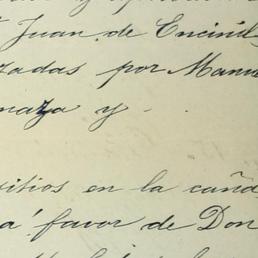 Juan de Encinil
zadas por Manu
naza y
sitios en la caña
a favor de Don